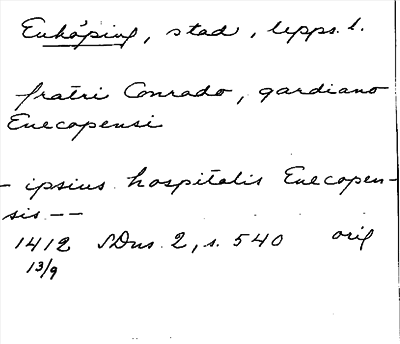 Enköping, stad, Upps. l.
fratri Conrado, gardiano
Enecopensi
- ipsius hospitalis Enecopen-
sis --
1412 SDns 2, s. 540 orig
13/9